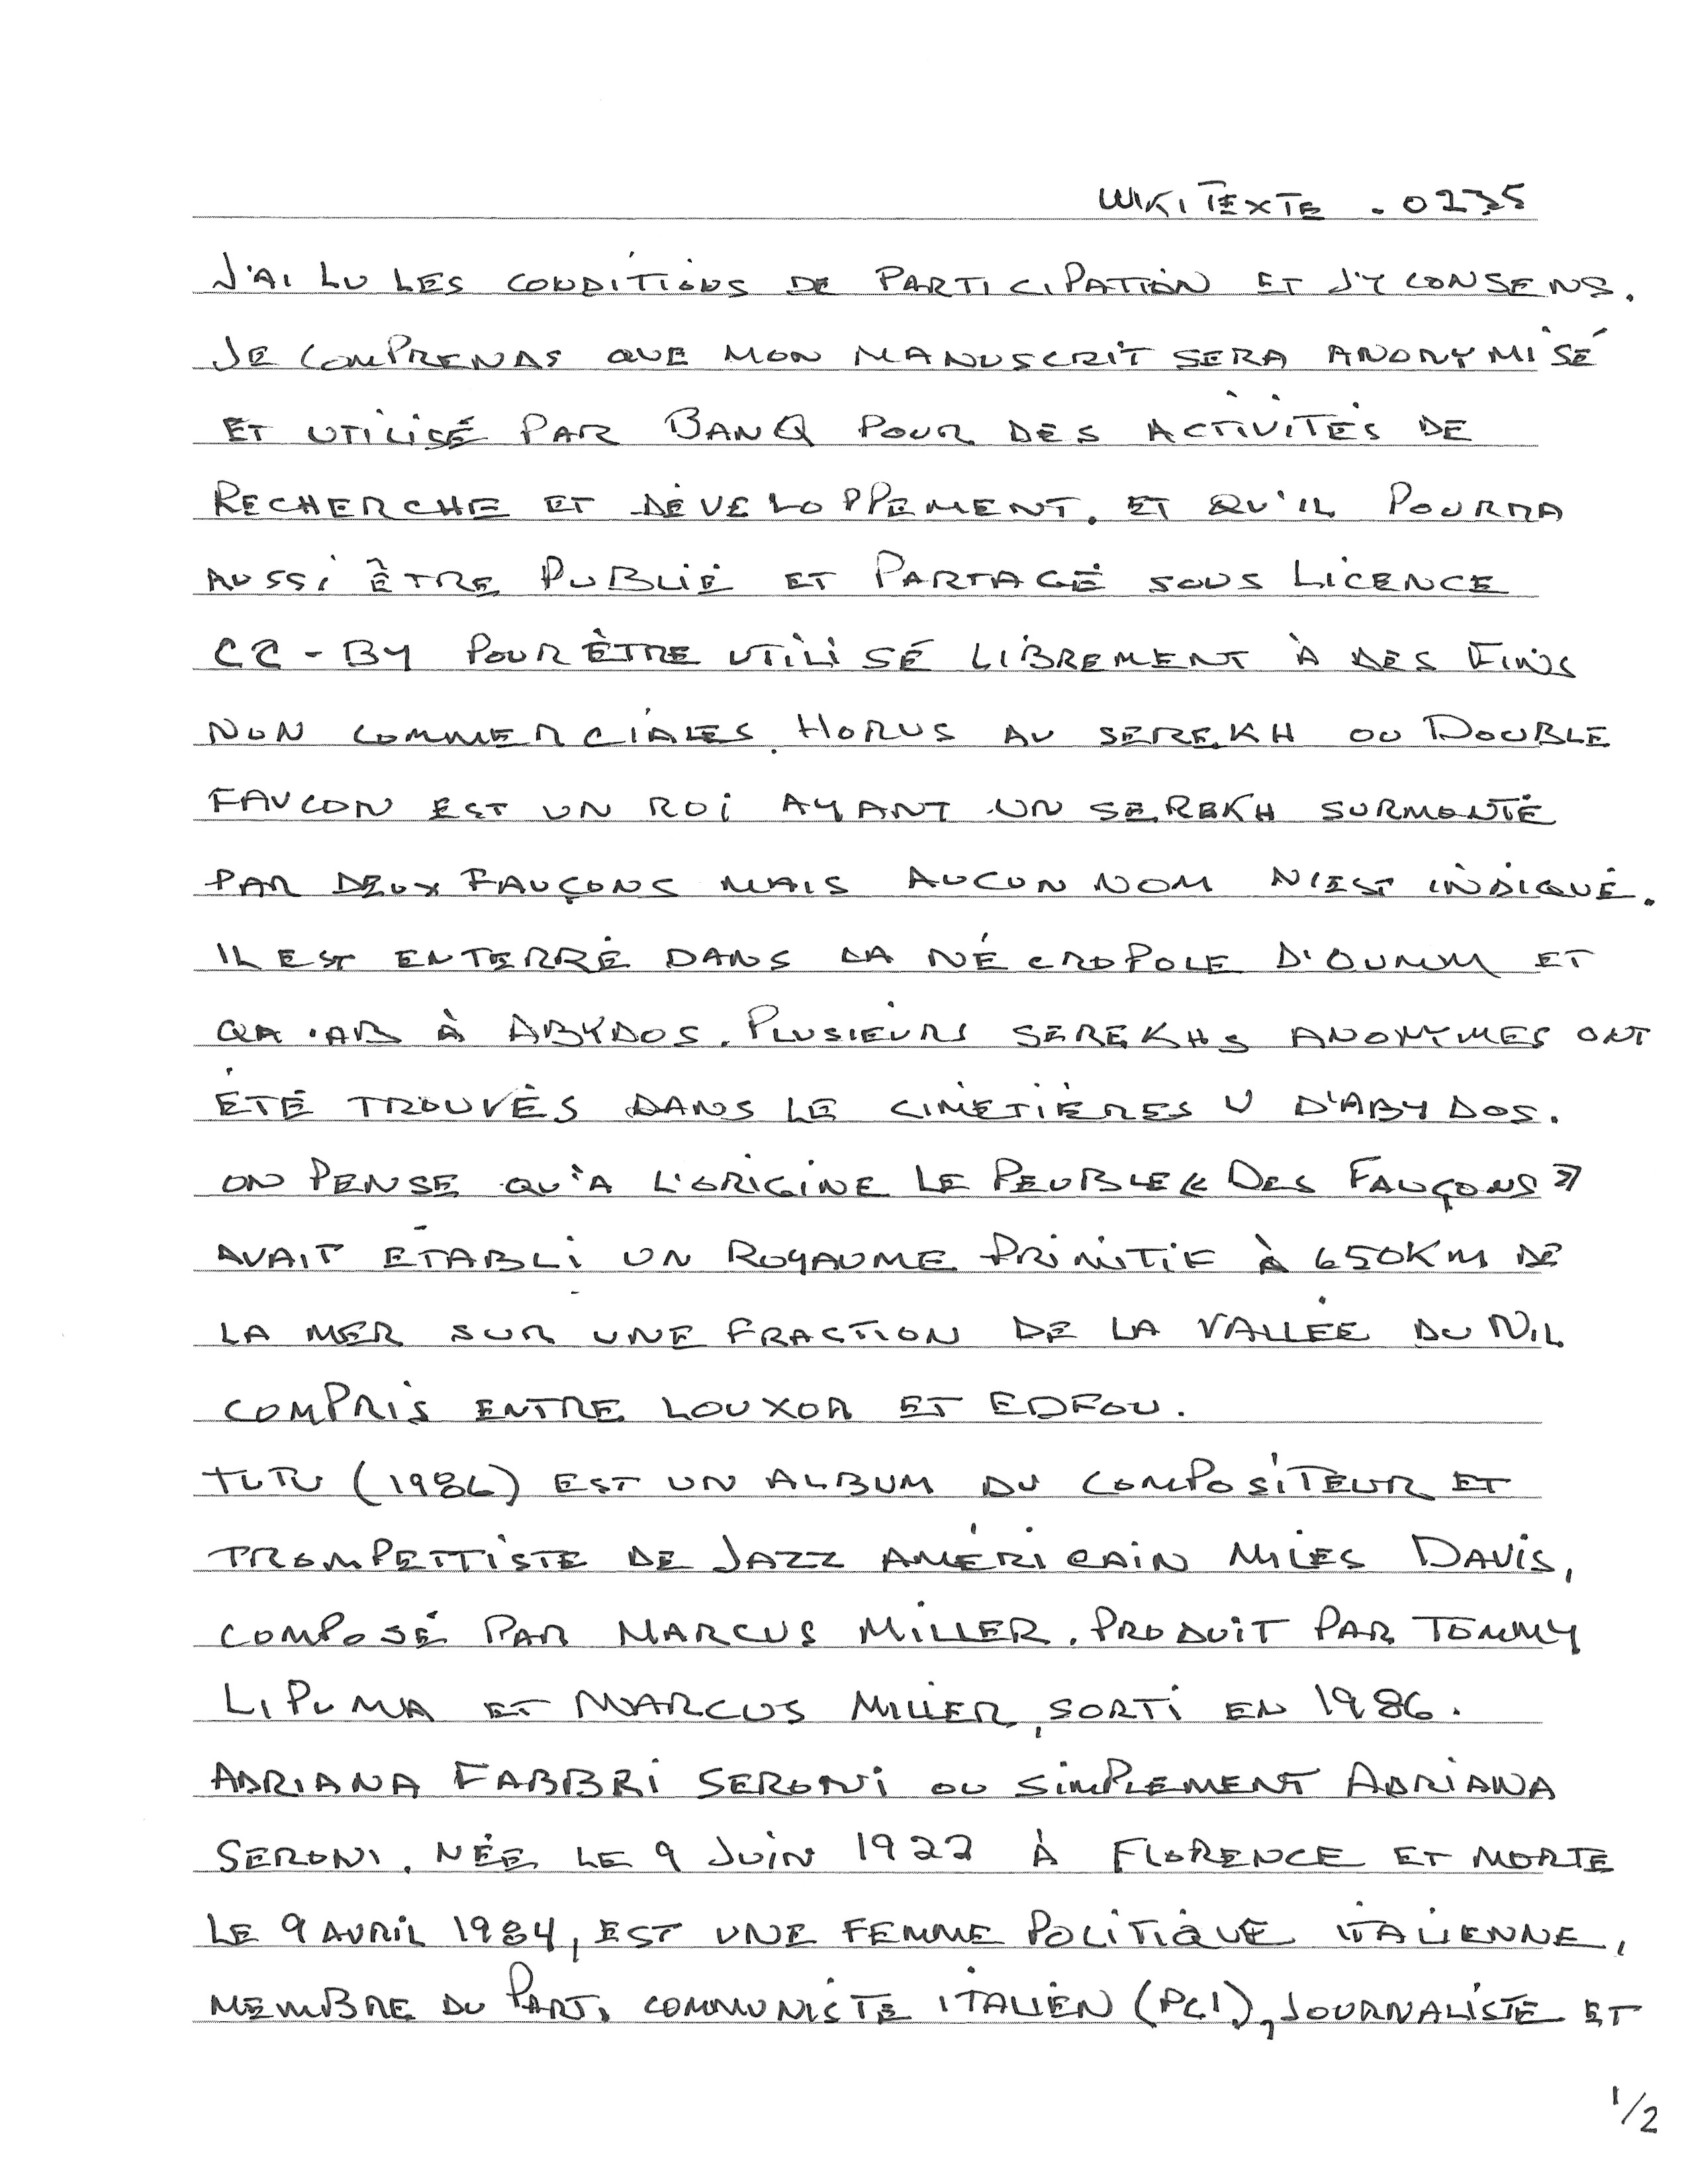 WIKITEXTE . 0235
J'AI LU LES CONDITIONS DE PARTICIPATION ET J'Y CONSENS.
JE COMPRENDS QUE MON MANUSCRIT SERA ANONYMISÉ
ET UTILISÉ PAR BANQ POUR DES ACTIVITÉS DE
RECHERCHE ET DÉVELOPPEMENT. ET QU'IL POURRA
AUSSI ÊTRE PUBLIÉ ET PARTAGÉ SOUS LICENCE
CC-BY POUR ÊTRE UTILISÉ LIBREMENT À DES FINS
NON COMMERCIALES. HORUS AU SEREKH OU DOUBLE
FAUCON EST UN ROI AYANT UN SEREKH SURMONTÉ
PAR DEUX FAUÇONS MAIS AUCUN NOM N'EST INDIQUÉ.
IL EST ENTERRÉ DANS LA NÉCROPOLE D'OUMM ET
QA'AB À ABYDOS. PLUSIEURS SEREKHS ANONYMES ONT
ÉTÉ TROUVÉS DANS LE CIMETIÈRES U D'ABYDOS.
ON PENSE QU'A L'ORIGINE LE PEUBLE « DES FAUÇONS »
AVAIT ÉTABLI UN ROYAUME PRIMITIF À 650KM DE
LA MER SUR UNE FRACTION DE LA VALLÉE DU NIL
COMPRIS ENTRE LOUXOR ET EDFOU.
TUTU (1986) EST UN ALBUM DU COMPOSITEUR ET
TROMPETTISTE DE JAZZ AMÉRICAIN MILES DAVIS,
COMPOSÉ PAR MARCUS MILLER. PRODUIT PAR TOMMY
LIPUMA ET MARCUS MILLER, SORTI EN 1986.
ADRIANA FABBRI SERONI OU SIMPLEMENT ADRIANA
SERONI. NÉE LE 9 JUIN 1922 À FLORENCE ET MORTE
LE 9 AVRIL 1984, EST UNE FEMME POLITIQUE ITALIENNE,
MEMBRE DU PARTI COMMUNISTE ITALIEN (PCI), JOURNALISTE ET
1/2